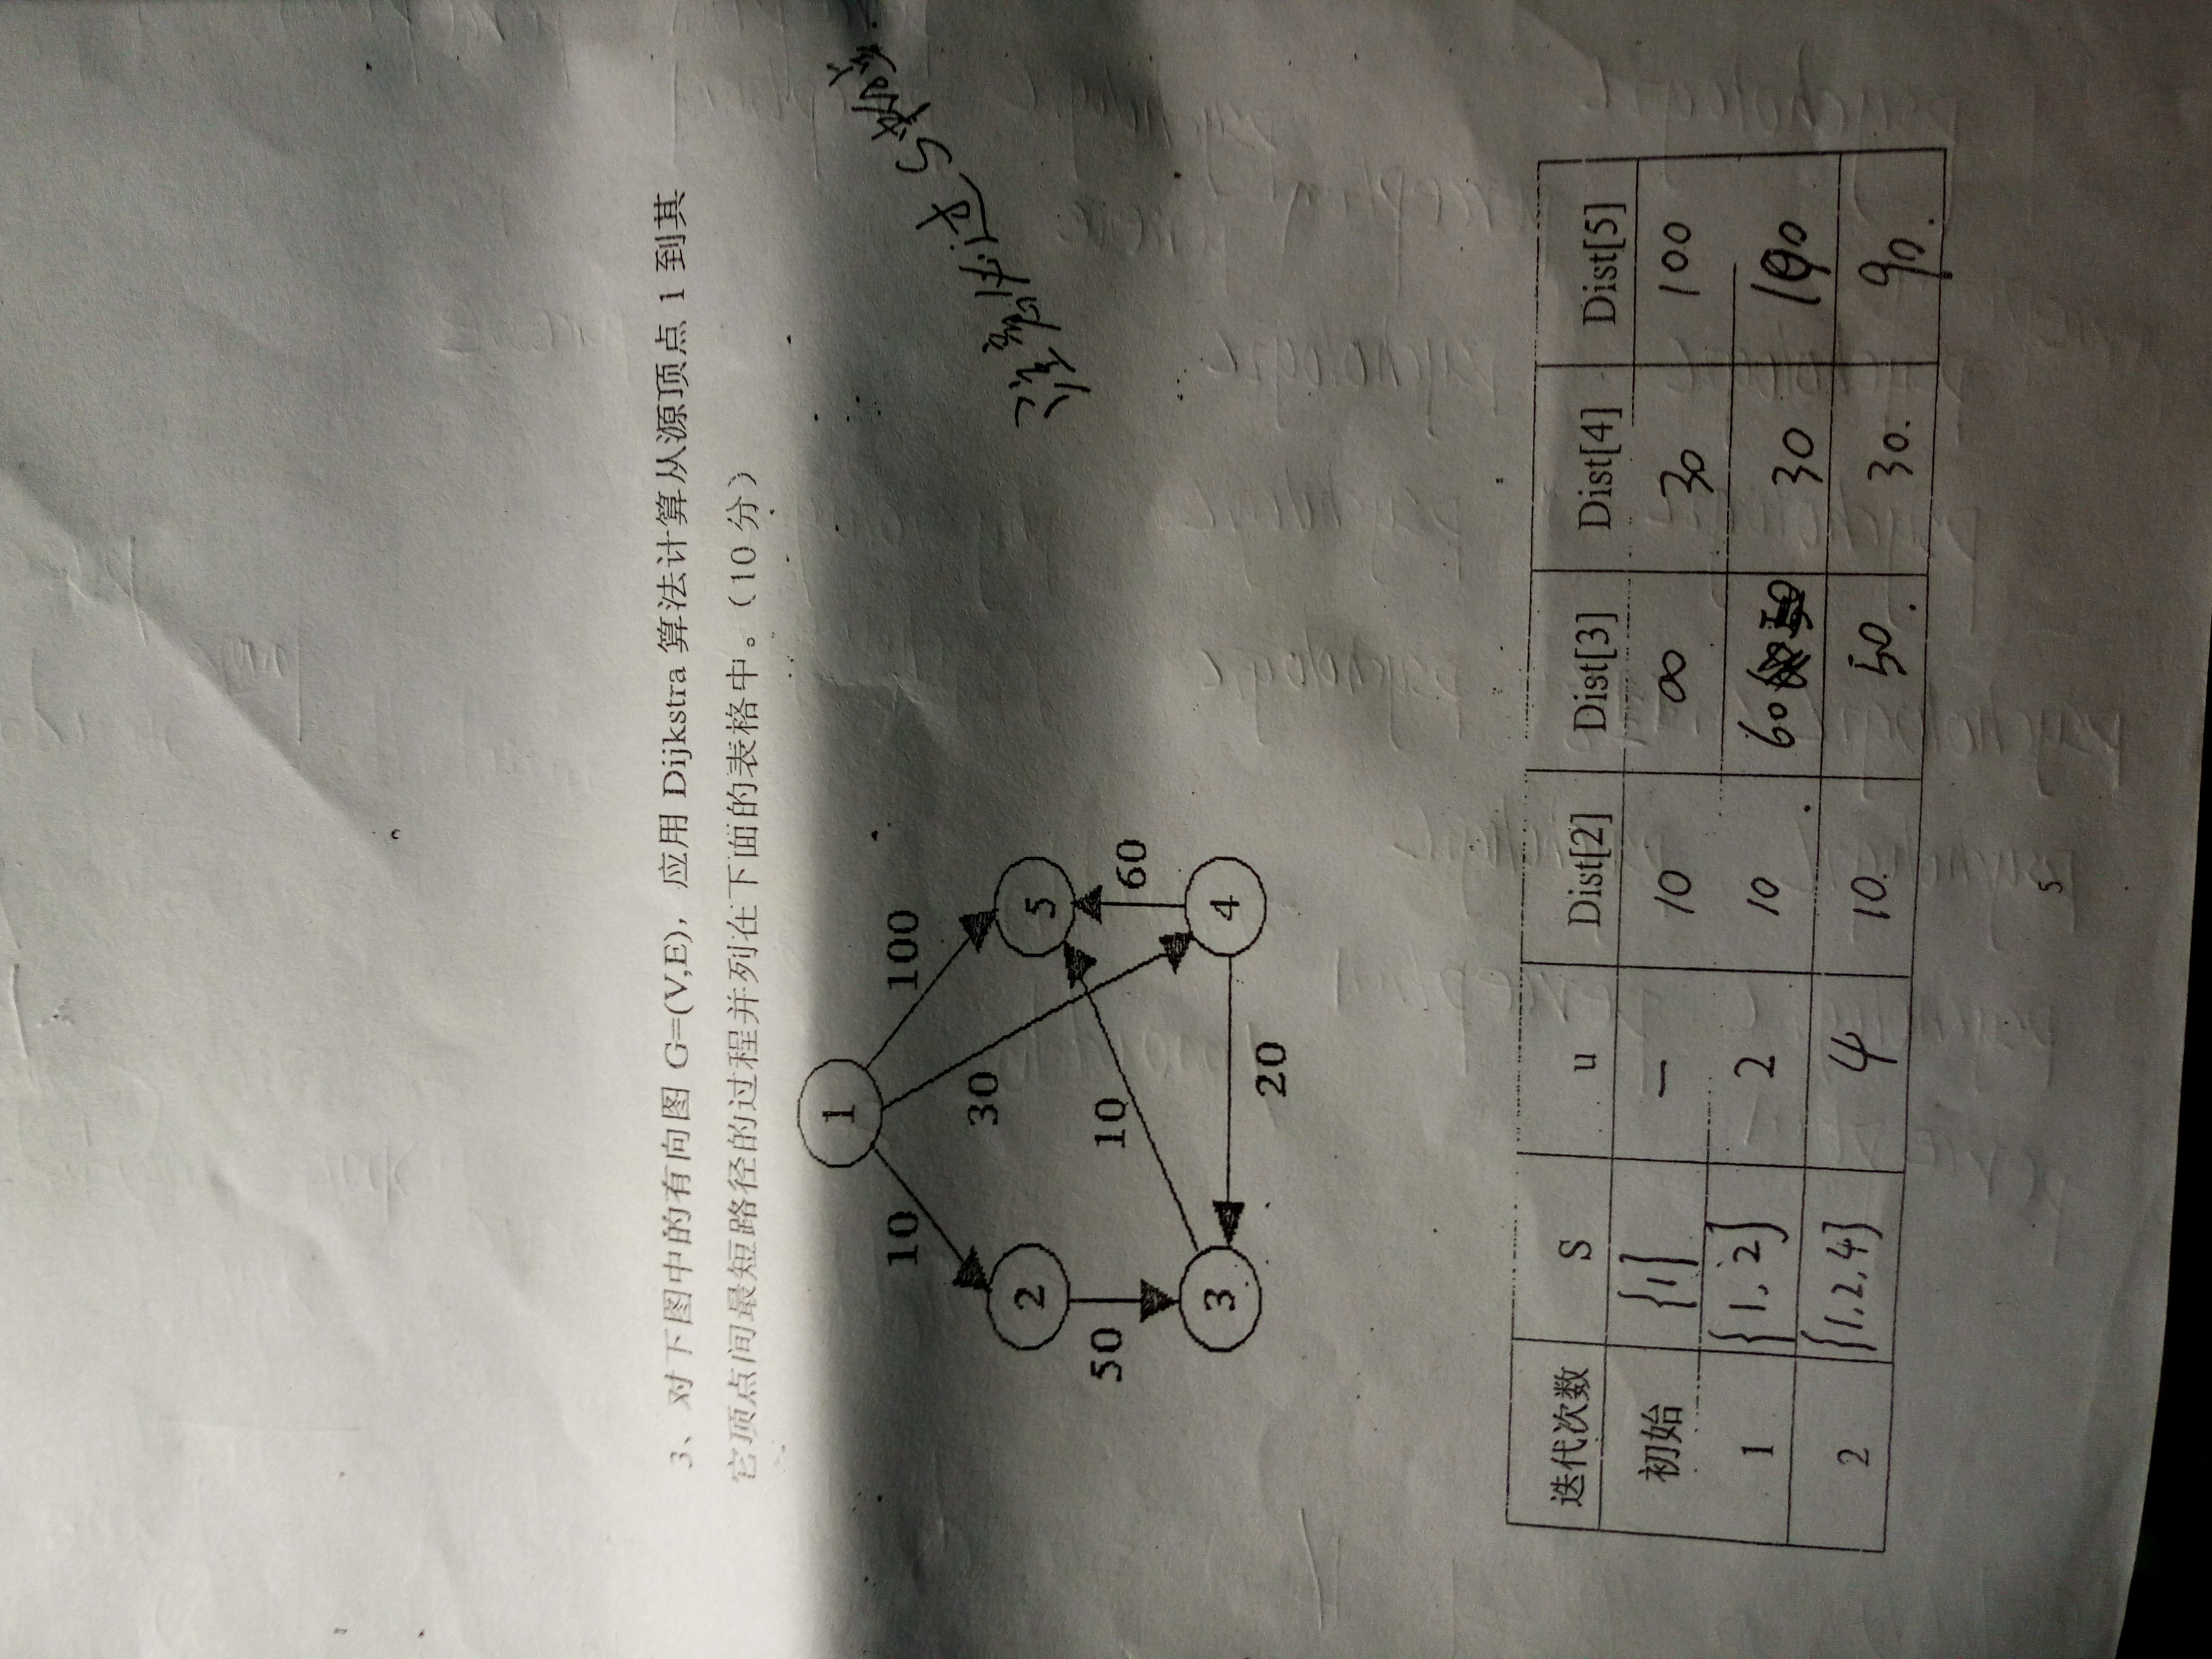 3、对下图中的有向图 G=(V,E)，应用 Dijkstra 算法计算从源顶点 1 到其
它顶点间最短路径的过程并列在下面的表格中。（10 分）
1
10 100
30
2 5
50 10 60
3 4
20
注意必过S中的点.
迭代次数 S u Dist[2] Dist[3] Dist[4] Dist[5]
初始 {1} — 10 ∞ 30 100
1 {1, 2} 2 10 60 30 100
2 {1,2,4} 4 10. 50. 30. 90.
5